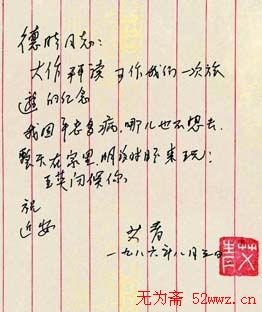 德明同志：
大作拜读 可作我们一次旅
游的纪念
我因年老多病，哪儿也不想去，
整天在家里，
王英问候你。
祝
近安
艾青
一九八六年八月三日
艾青
无为斋 52wwz.cn